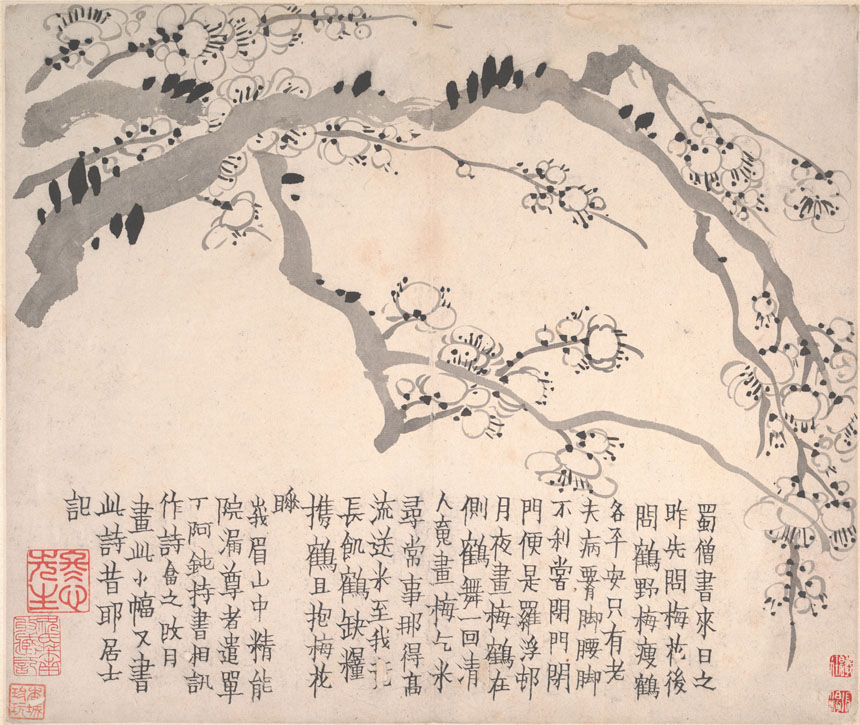 蜀僧書來日之
昨先問梅花後
問鶴野梅瘦鶴
各平安只有老
夫病脚腰脚
不利嘗閉門閉
門便是羅浮邨
月夜畫梅鶴在
側鶴舞一回清
人䰟畫梅乞米
尋常事那得高
流送米至我
長飢鶴缺糧
携鶴且抱梅花
睡
峩眉山中精能
院漏尊者遣單
丁阿鈍持書相訊
作詩畣之改月
畫此小幅又書
此詩昔耶居士
記
冬心先生